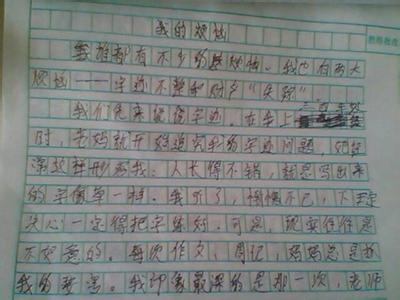 我的烦恼
我谁都有不少的烦恼。我也有两大
烦恼——字迹不整和对字“失踪”
我们先来说说字迹。在学上
时,老妈就开始追究我的字迹问题,她
深这样形容我:人长得不错,就是写出来
的字像草一样。我听了,惭愧不已,下定
决心一定得把字练好。可是,现实往往是
不如意的。每次作文、周记,妈妈总是
我的要害。我印象最深的是那一次,老师